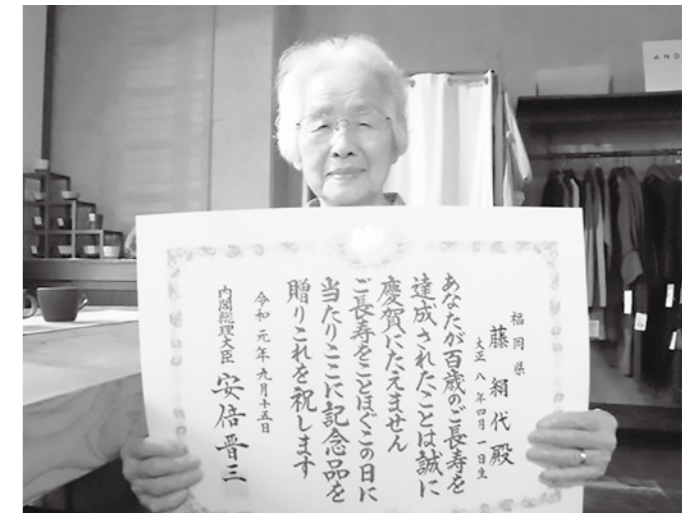 福岡県
藤 絹代殿
大正八年四月一日生
あなたが百歳のご長寿を
達成されたことは誠に
慶賀にたえません
ご長寿をことほぐこの日に
当たりここに記念品を
贈りこれを祝します
令和元年九月十五日
内閣総理大臣 安倍晋三
AND